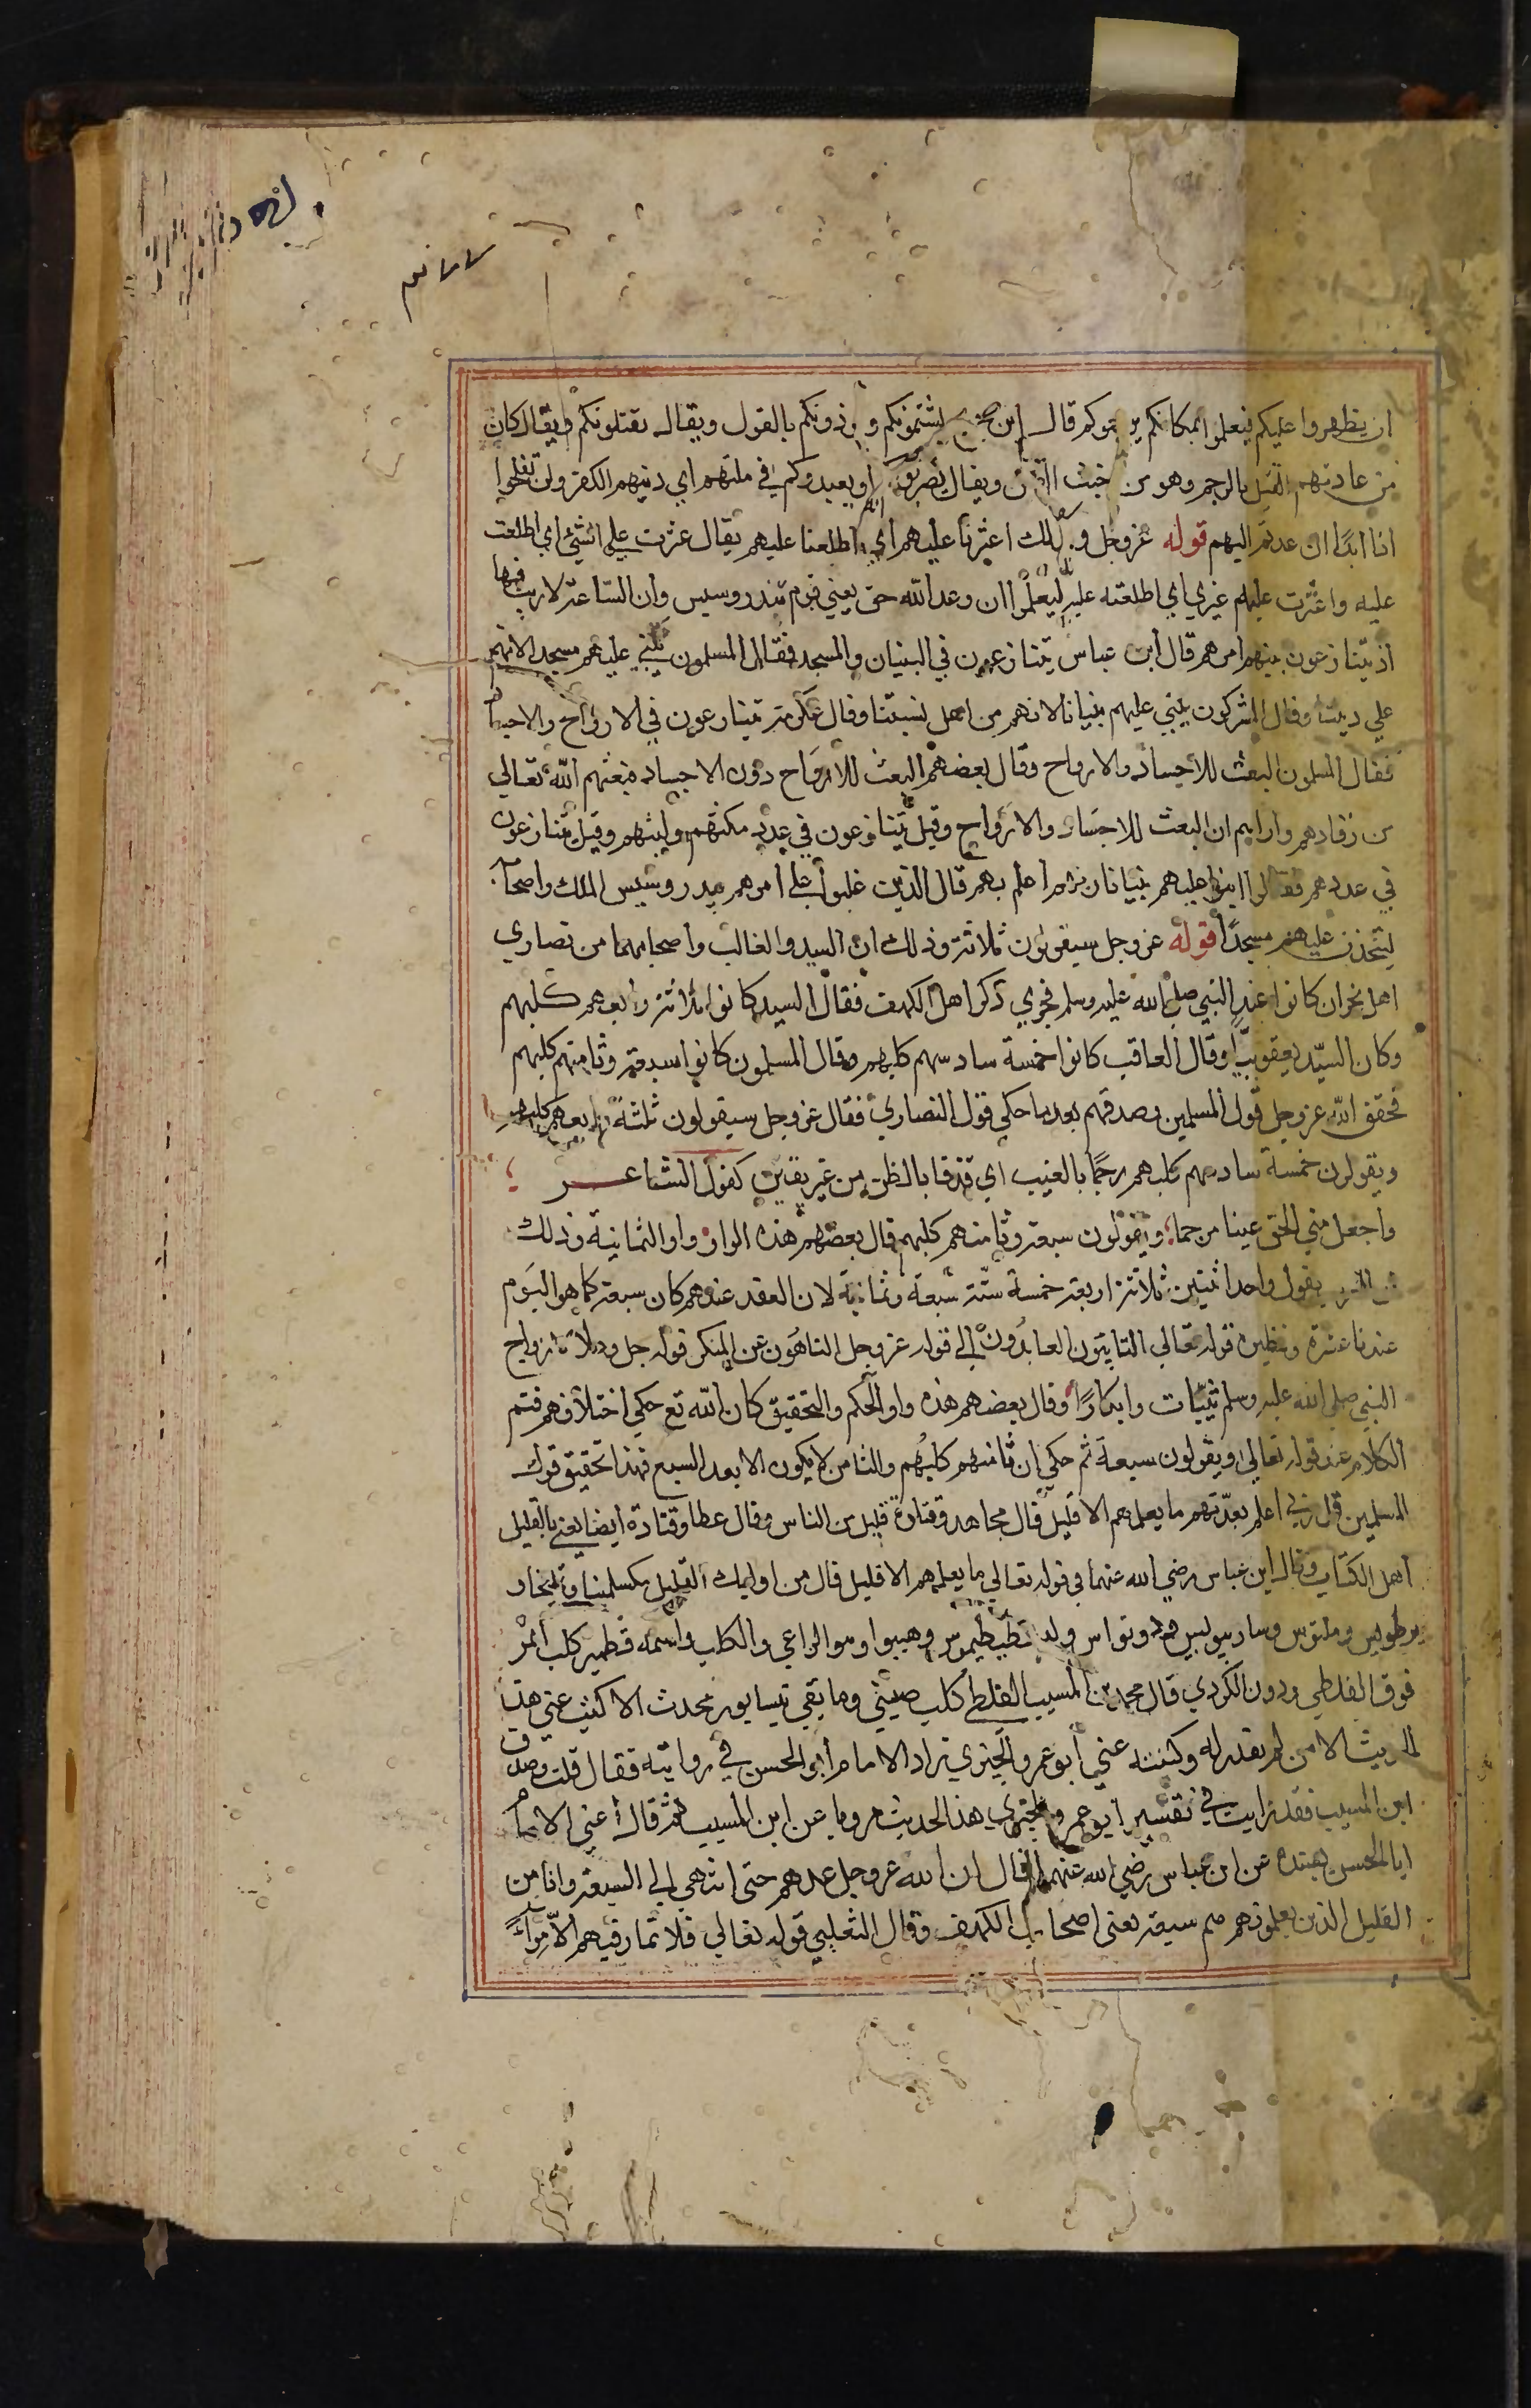 ان يظهروا عليكم فيعلموا بمكانكم يرجموكم قال ابن جريج يشتمونكم ويوذونكم بالقول ويقال يقتلونكم ويقال كان
من عادتهم القتل بالرجم وهو من اخبث القتل ويقال يضربوكم او يعيدوكم في ملتهم اي دينهم الكفر ولن تفلحوا
اذا ابدا ان عدتم اليهم قوله عزوجل وكذلك اعثرنا عليهم اي اطلعنا عليهم يقال عثرت علي الشئ اي اطلعت
عليه واعثرت عليهم غيري اي اطلعته عليه ليعلموا ان وعد الله حق يعني قوم تندروسيس وان الساعة لا ريب فيها
اذ يتنازعون بينهم امرهم قال ابن عباس يتنازعون في البنيان والمسجد فقال المسلمون نبني عليهم مسجد الانهم
علي ديننا وقال المشركون نبني عليهم بنيانا لانهم من اهل نسبتنا وقال عكرمة يتنازعون في الارواح والاجساد
فقال المسلمون البعث للاجساد والارواح وقال بعضهم البعث للارواح دون الاجساد فبعثهم الله تعالي
من رقادهم واراهم ان البعث للاجساد والارواح وقيل يتنازعون في عدد مكثهم ولبثهم وقيل يتنازعون
في عددهم فقالوا ابنوا عليهم بنيانا ربهم اعلم بهم قال الذين غلبوا علي امرهم تيدروسيس الملك واصحابه
لنتخذن عليهم مسجدا قوله عزوجل سيقولون ثلاثة وذلك ان السيد والغالب واصحابهما من نصاري
اهل نجران كانوا عند النبي صلي الله عليه وسلم فجري ذكر اهل الكهف فقال السيد كانوا ثلاثة رابعهم كلبهم
وكان السيد يعقوبيا وقال العاقب كانوا خمسة سادسهم كلبهم وقال المسلمون كانوا سبعة وثامنهم كلبهم
فحقق الله عزوجل قول المسلمين وصدقهم بعد ما حكي قول النصاري فقال عزوجل سيقولون ثلثة رابعهم كلبهم
ويقولون خمسة سادسهم كلبهم رجما بالغيب اي قذفا بالظن من غير يقين كقول الشاعر
واجعل مني الحق عينا مرجما ويقولون سبعة وثامنهم كلبهم قال بعضهم هذه الواو واو الثمانية وذلك
ان العرب يقول واحد اثنين ثلاثة اربعة خمسة ستة سبعة وثمانية لان العقد عندهم كان سبعة كما هو اليوم
عندنا عشرة ونظيره قوله تعالي التايبون العابدون الي قوله عزوجل الناهون عن المنكر قوله جل وعلا لازواج
النبي صلي الله عليه وسلم ثيبات وابكارا وقال بعضهم هذه واو الحكم والتحقيق كان الله تع حكي اختلافهم فتم
الكلام عند قوله تعالي ويقولون سبعة ثم حكي ان ثامنهم كلبهم والثامن لا يكون الا بعد السبع فهذا تحقيق قول
المسلمين قل ربي اعلم بعدتهم ما يعلمهم الا قليل قال مجاهد وقتادة قليل من الناس وقال عطا وقتادة ايضا يعني بالقليل
اهل الكتاب وقال ابن عباس رضي الله عنهما في قوله تعالي ما يعلمهم الا قليل قال من اوليك القليل مكسلمينا وتمليخا و
مرطوليس ... وساريبوليس ... ونواس ... وهو الراعي والكلب واسمه قطمير كلب انمر
فوق القلطي ودون الكردي قال محمد بن المسيب القلطي كلب صيني وما بقي نيسابور محدث الا كتب عني هذا
الحديث الا من لم يقدر له وكتبه عني ابو عمرو الحيري زاد الامام ابو الحسن في روايته فقال قلت وصدق
ابن المسيب فقد رايت في تفسير ابو عمرو الحيري هذا الحديث مرويا عن ابن المسيب ثم قال اعني الامام
ابا الحسن ... عن ابن عباس رضي الله عنهما قال ان الله عزوجل عدهم حتي انتهي الي السبعة وانا من
القليل الذين يعلمونهم هم سبعة يعني اصحاب الكهف وقال الثعلبي قوله تعالي فلا تمار فيهم الا مراء